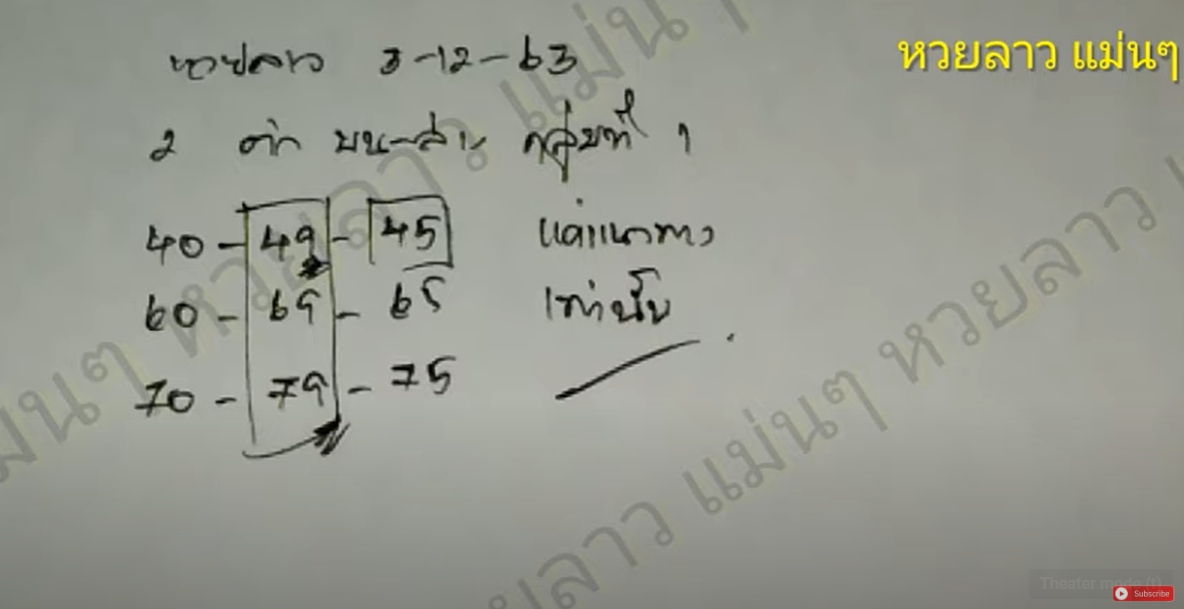 หวยลาว แม่นๆ
หวยลาว 3-12-63
2 ตัว บน-ล่าง กลุ่มที่ 1
40 - 49 - 45 แค่แนวทาง
60 - 69 - 65 เท่านั้น
70 - 79 - 75
หวยลาว แม่นๆ หวยลาว แม่นๆ
หวยลาว แม่นๆ หวยลาว
Theater mode (t)
Subscribe